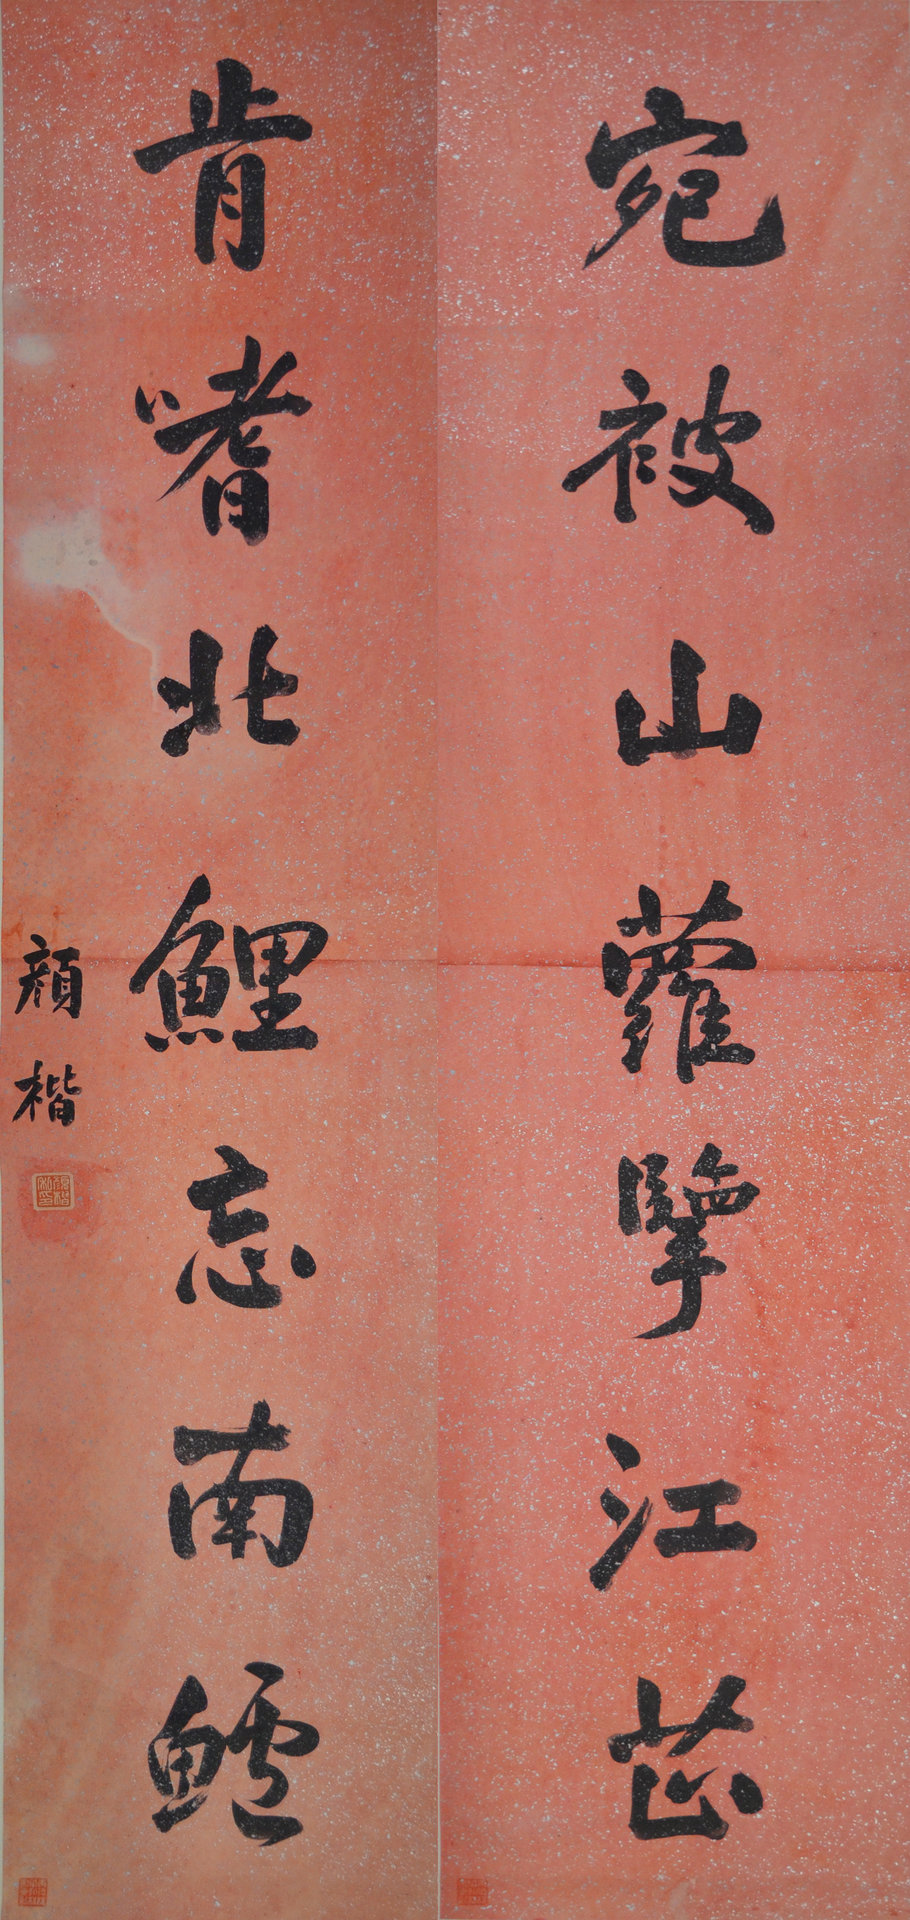 宛被山蘿擥江芷
肯嗜北鯉忘南鱸
顏楷